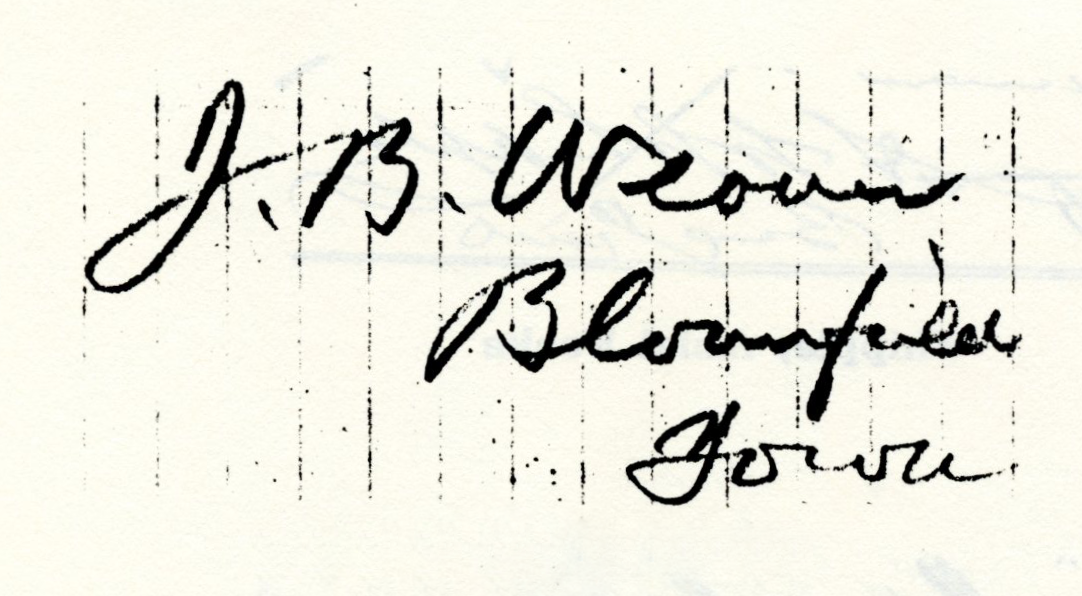 J. B. Weaver
Bloomfield
Iowa